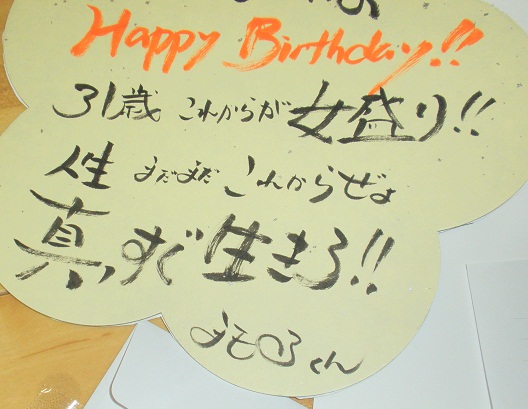 Happy Birthday!!
31歳 これからが 女盛り!!
人生 まだまだ これからぜよ
真すぐ 生きろ!!
くん